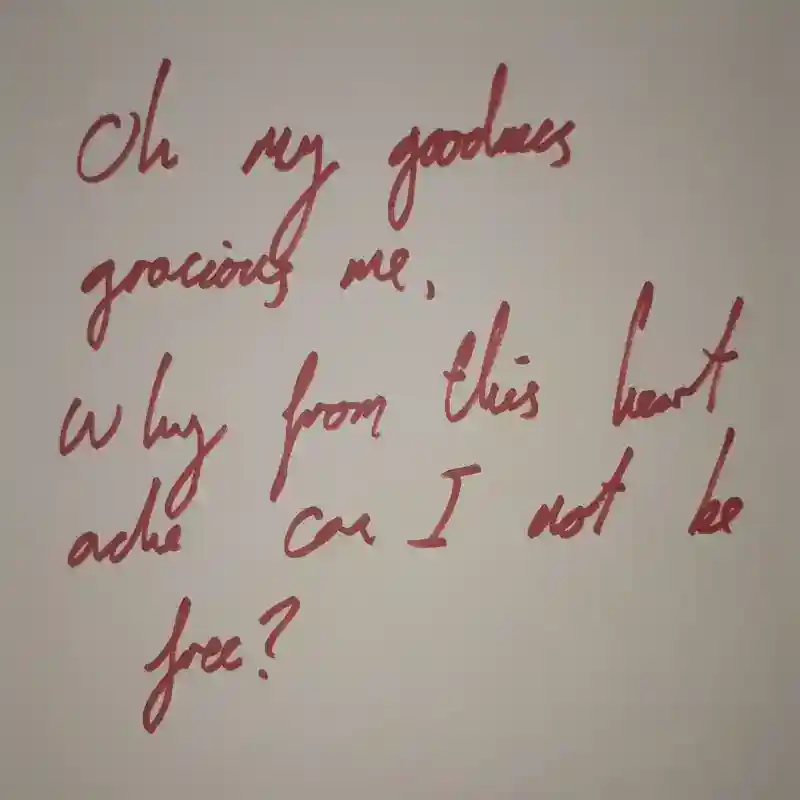 Oh my goodness
gracious me,
Why from this heart
ache can I not be
free?